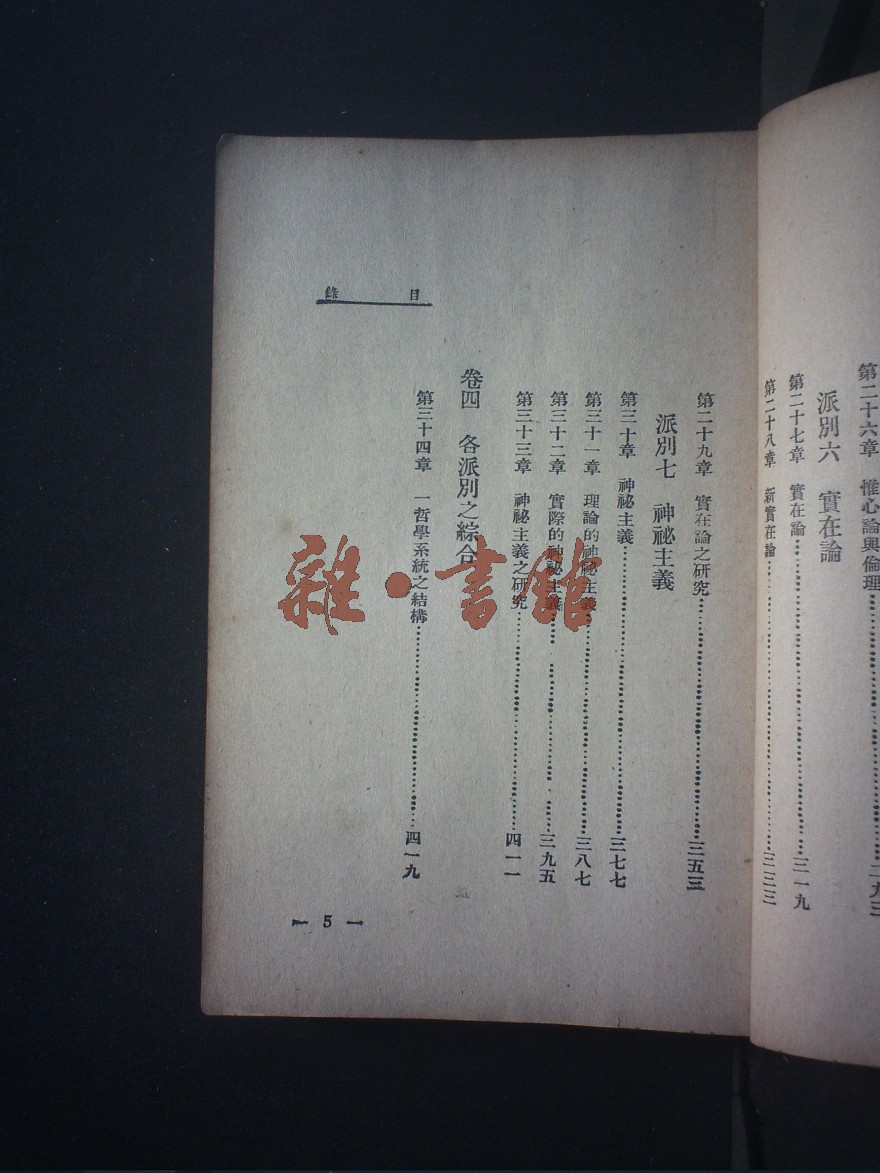 第二十六章 惟心論與倫理
派別六 實在論
第二十七章 實在論……三一九
第二十八章 新實在論……三三三
目錄
第二十九章 實在論之研究……三五三
派別七 神祕主義
第三十章 神祕主義……三七七
第三十一章 理論的神祕主義……三八七
第三十二章 實際的神祕主義……三九五
第三十三章 神祕主義之研究……四一一
卷四 各派別之綜合
第三十四章 一哲學系統之結構……四一九
— 5 —
雜·書館